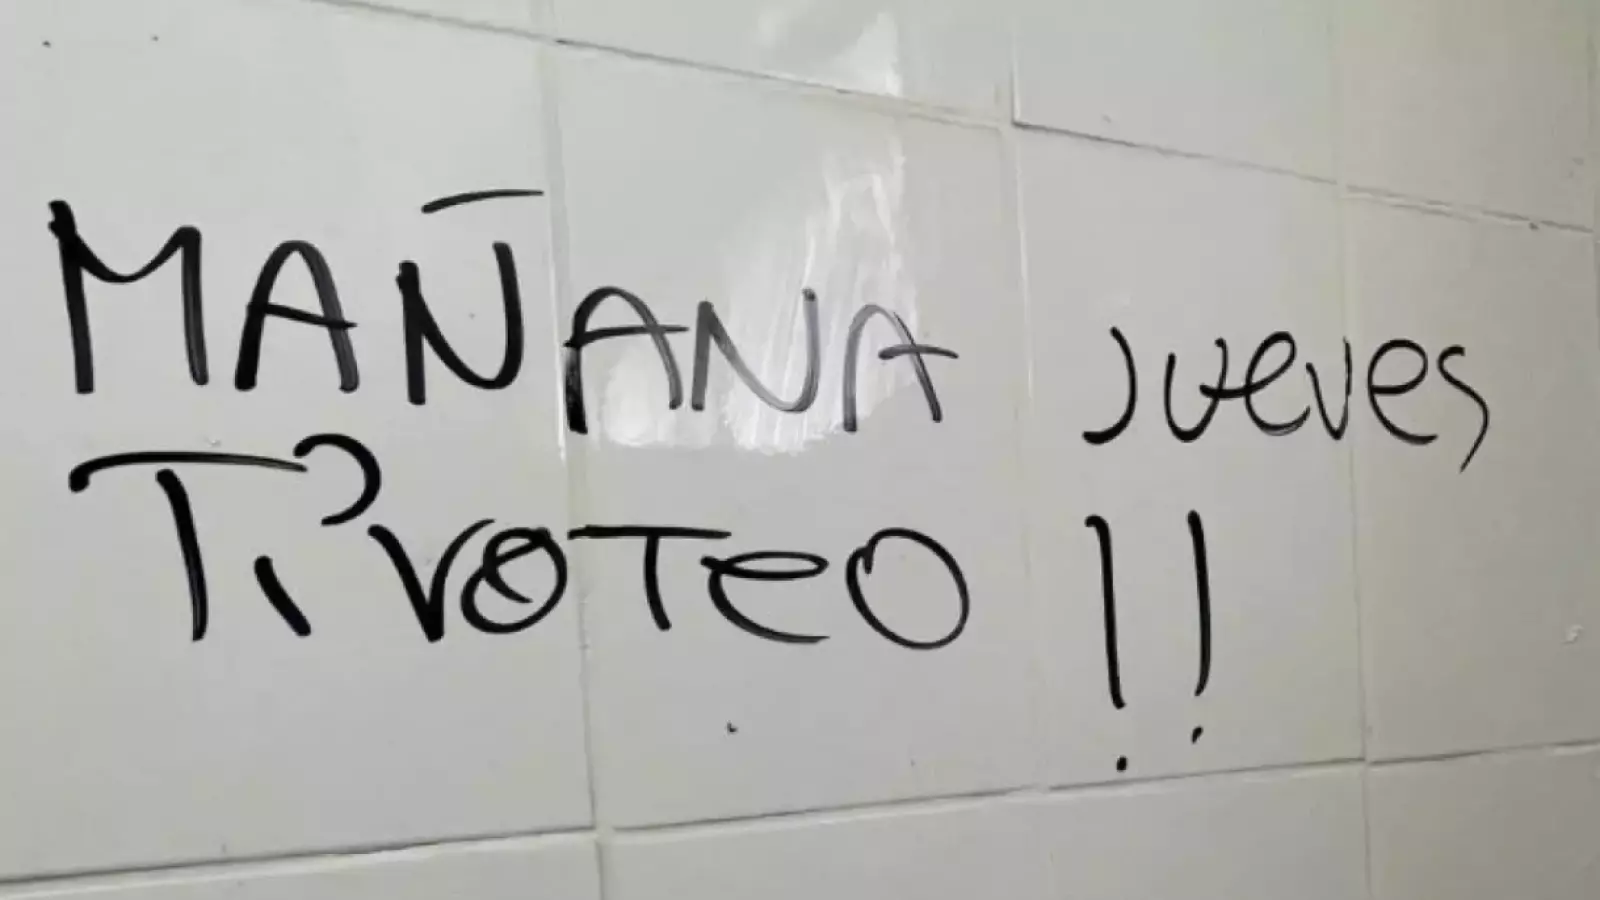 MAÑANA JUEVES
TiROTEO !!